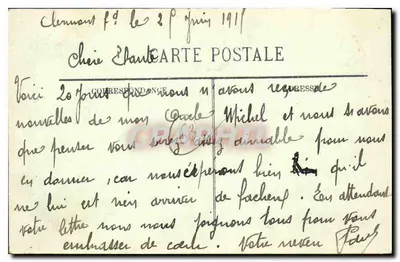 Clermont Fd le 25 Juin 1915
Chère Tante
CARTE POSTALE
CORRESPONDANCE
Voici 20 jours que nous n'avons reçu de
nouvelles de mon Oncle Michel et nous savons
que penser vous serez assez aimable pour nous
en donner, car nous espérons bien qu'il
ne lui est rien arriver de facheux. En attendant
votre lettre nous nous joignons tous pour vous
embrasser de coeur. Votre neveu